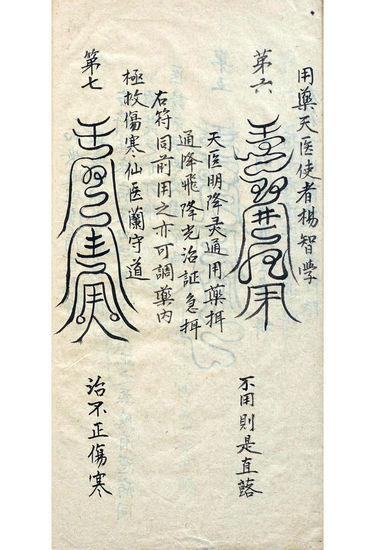 用藥天医使者楊智學
第六
不用則是直蕗
天医明降灵通用藥拜
通降飛降光治証急拜
右符同前用之亦可調藥内
極救傷寒仙医蘭守道
第七
治不正傷寒